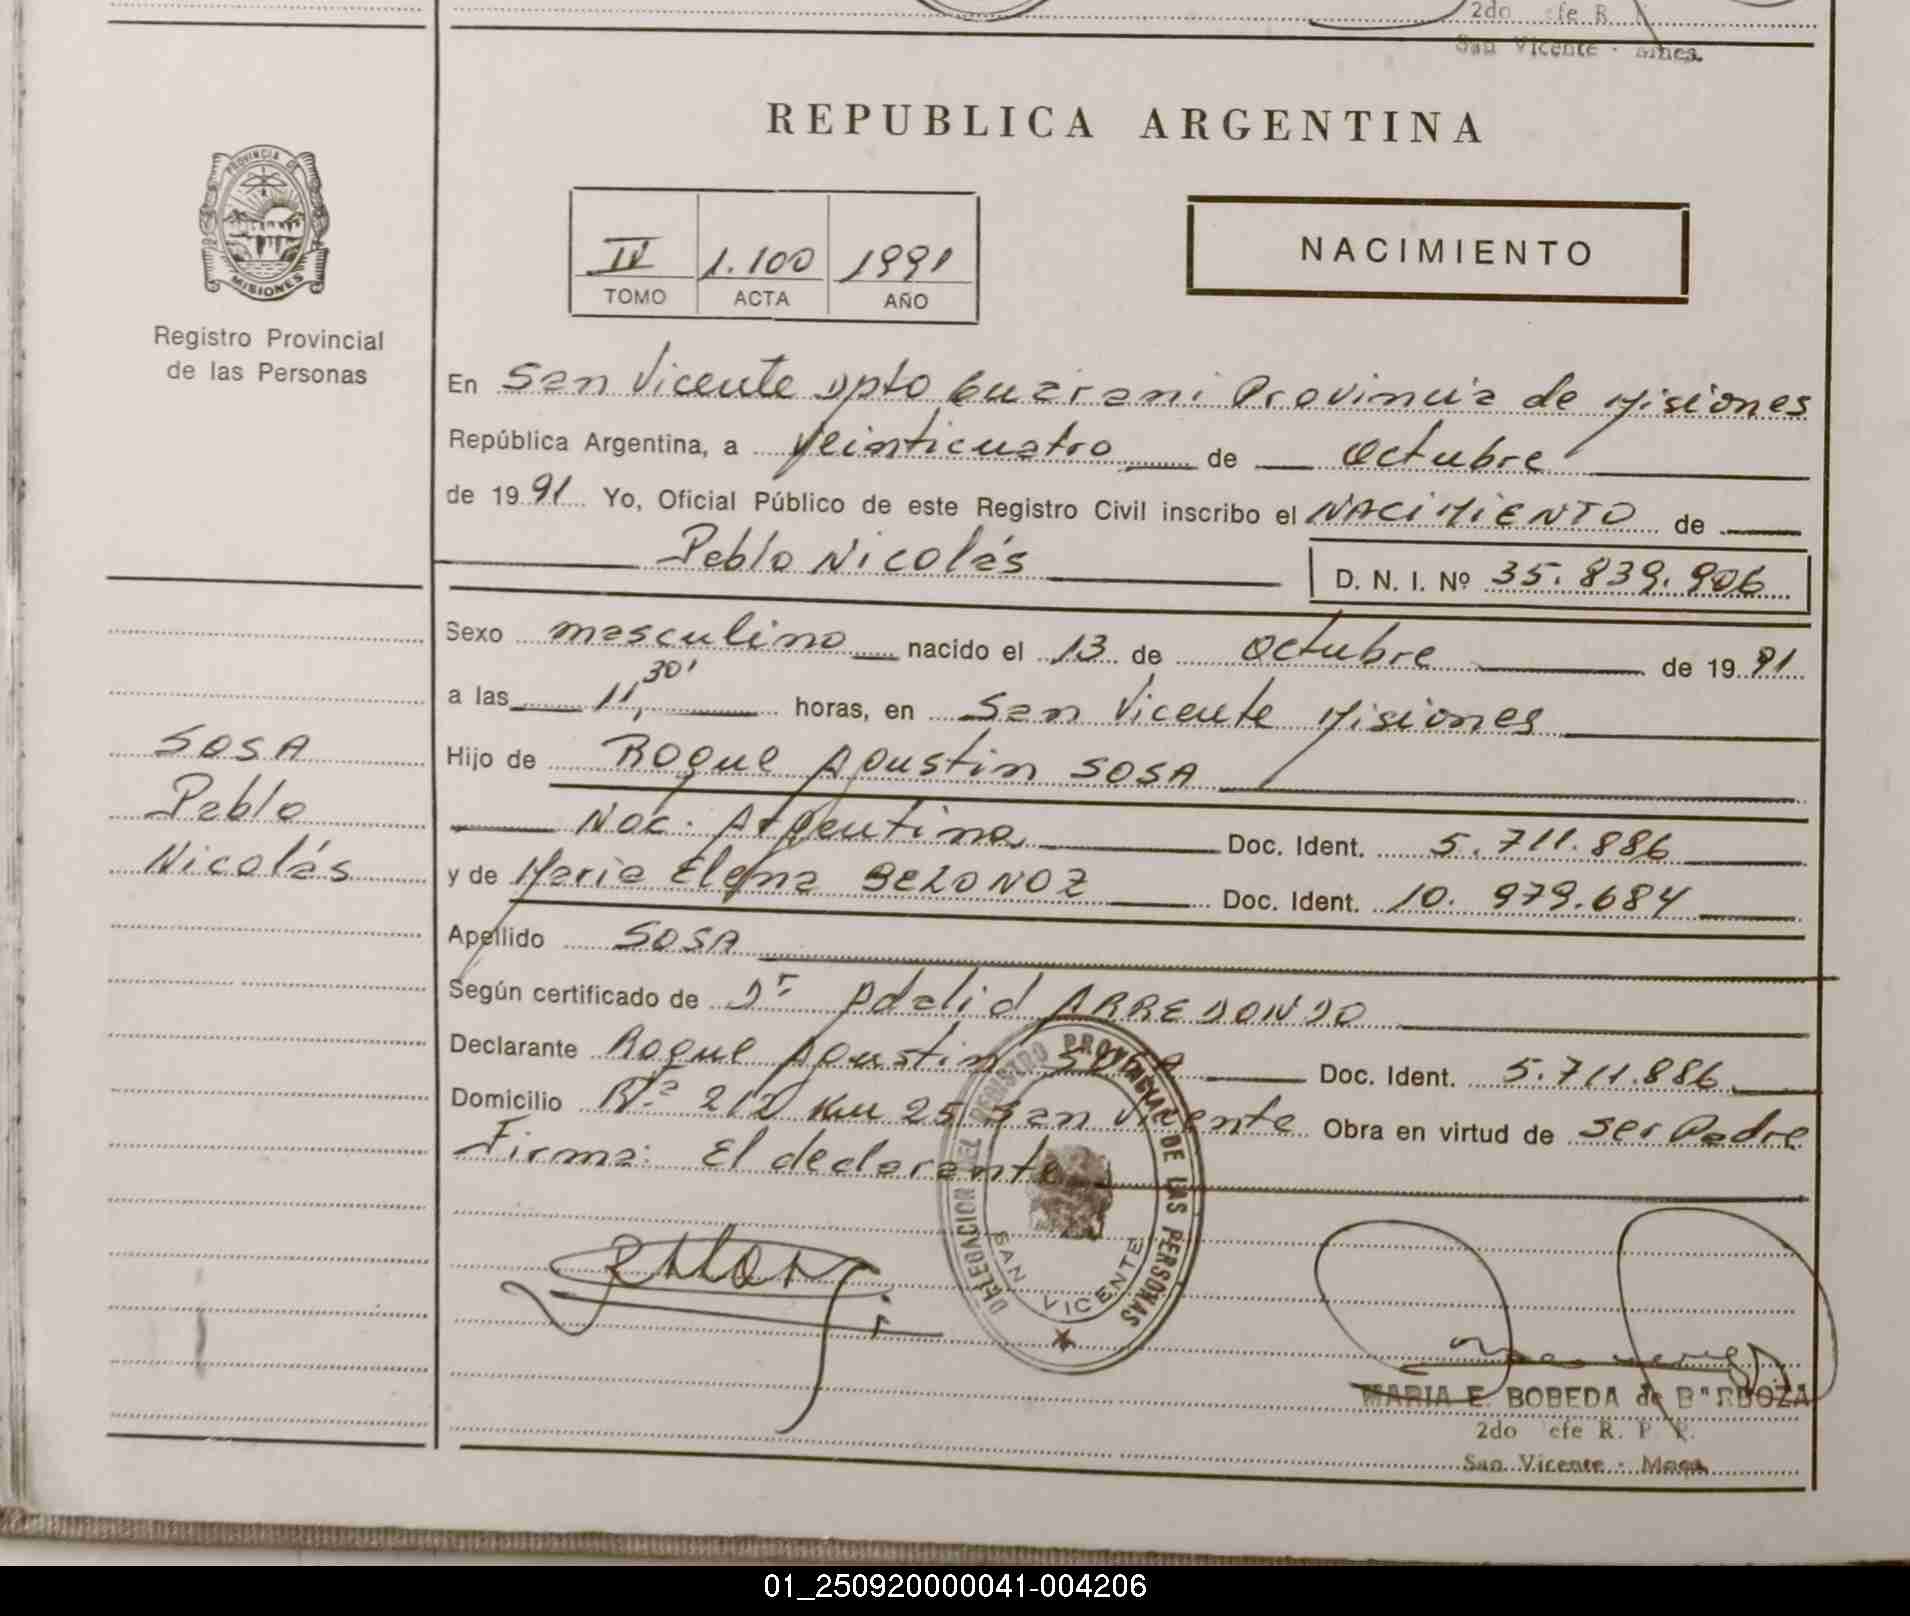 2do efe R.
San Vicente - Mnes.
REPUBLICA ARGENTINA
PROVINCIA DE
MISIONES
Registro Provincial
de las Personas
IV 1.100 1991
TOMO ACTA AÑO
NACIMIENTO
En San Vicente Dpto Guarani Provincia de Misiones
República Argentina, a Veinticuatro de Octubre
de 1991 Yo, Oficial Público de este Registro Civil inscribo el NACIMIENTO de
Pablo Nicolás D. N. I. Nº 35.839.906
Sexo masculino nacido el 13 de Octubre de 1991
a las 11,30' horas, en San Vicente Misiones
Hijo de Roque Agustin SOSA
Nac. Argentina Doc. Ident. 5.711.886
y de Maria Elena BELONOZ Doc. Ident. 10.979.684
Apellido SOSA
Según certificado de Dr Adalid ARREDONDO
Declarante Roque Agustin SOSA Doc. Ident. 5.711.886
Domicilio Rta 212 Km 25 San Vicente Obra en virtud de ser Padre
Firma: El declarante
SOSA
Pablo
Nicolás
DELEGACION DEL REGISTRO PROVINCIAL DE LAS PERSONAS
SAN VICENTE
MARIA E. BOBEDA de BARBOZA
2do efe R. P. P.
San Vicente - Mnes.
01_250920000041-004206